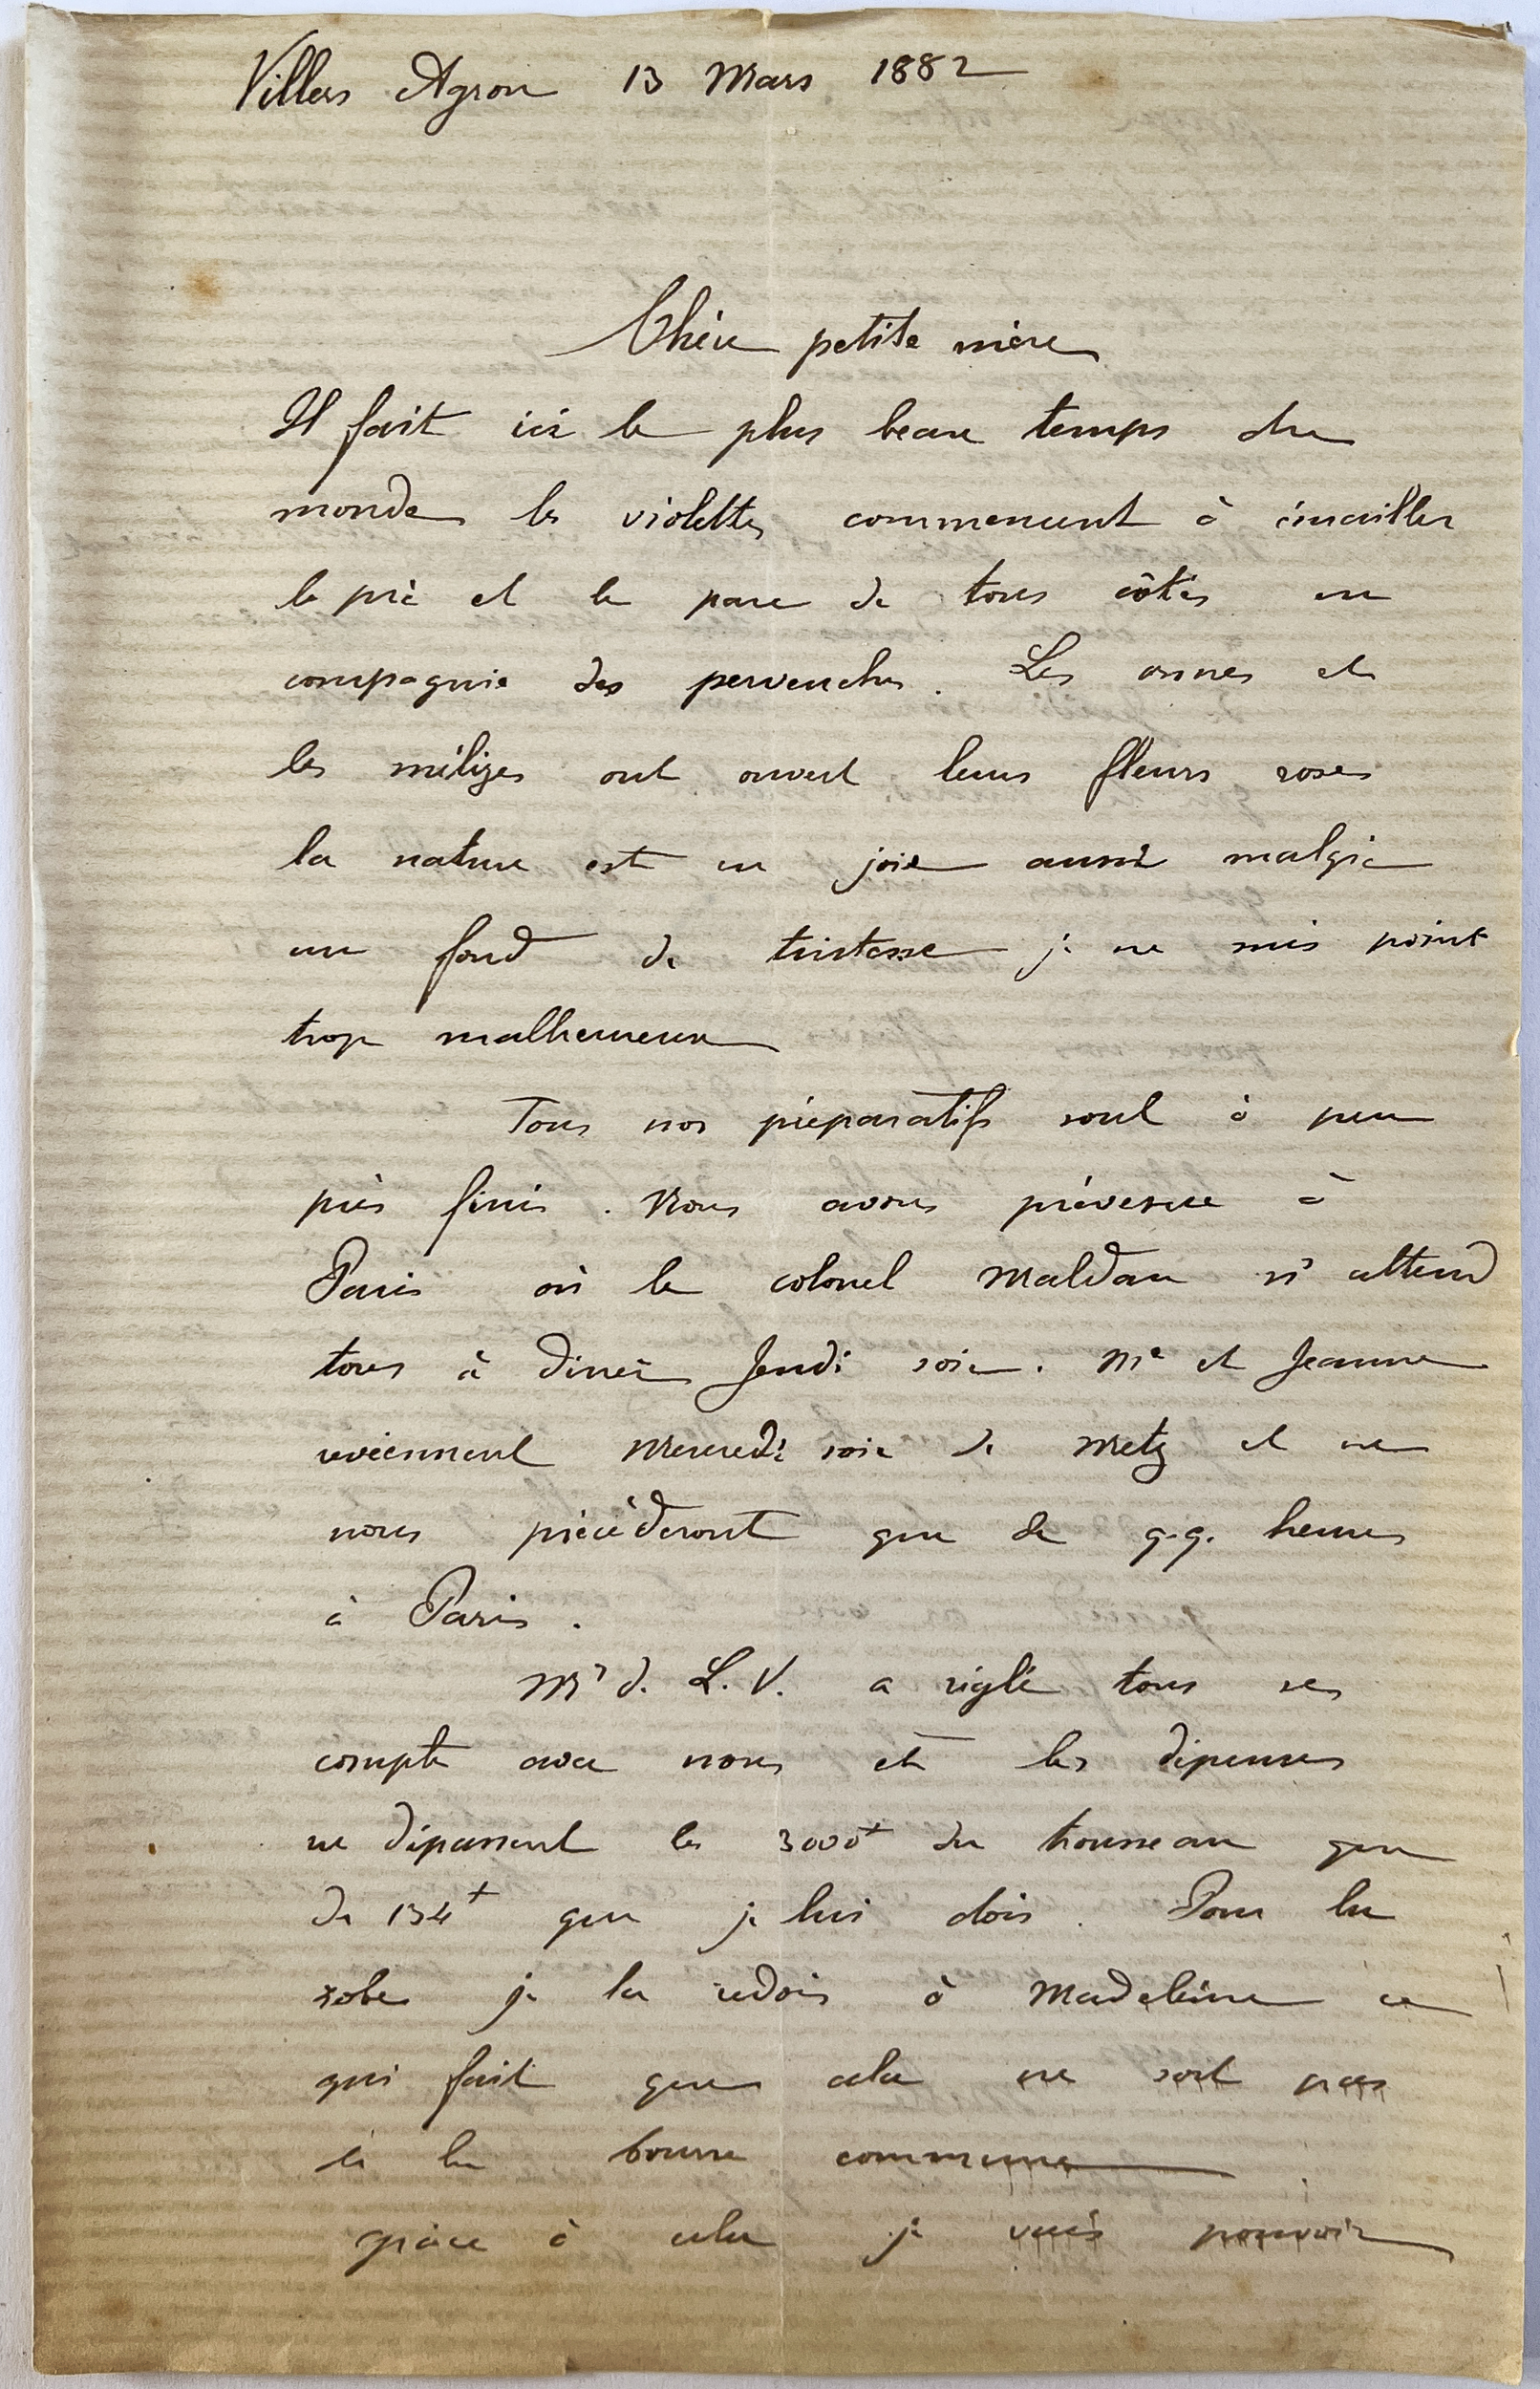 Villers Agron 13 Mars 1882
Chère petite mère
Il fait ici le plus beau temps du
monde les violettes commencent à émailler
le pré et le parc de tous côtés en
compagnie des pervenches. Les ormes et
les mélèzes ont ouvert leurs fleurs roses
la nature est en joie aussi malgré
un fond de tristesse je ne suis point
trop malheureux
Tous nos préparatifs sont à peu
près finis. Nous avons prévenu à
Paris où le colonel Maldan n' attend
tous à diner Jeudi soir. Me et Jeanne
reviennent Mercredi soir de Metz et ne
nous précèderont que de q.q. heures
à Paris.
Mr d. L. V. a réglé tous ses
compte avec nous et les dépenses
ne dépassent les 3000f du trousseau que
de 134f que je lui dois. Pour la
robe je la redois à Madeleine ce
qui fait que cela ne sort pas
de la bourse commune
grâce à cela je vais pouvoir